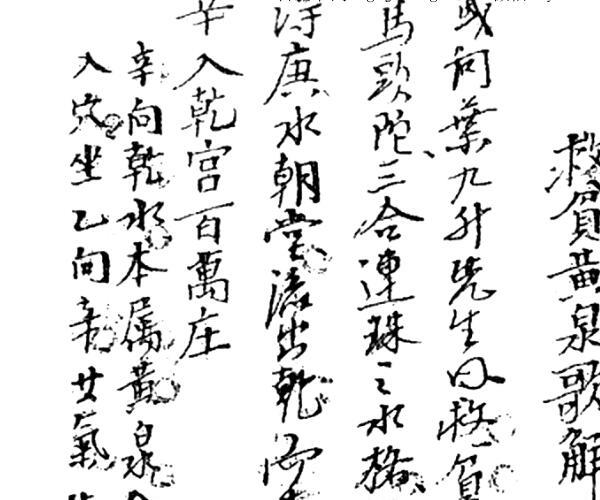 救貧黃泉歌解
或问葉九升先生曰救貧
馬頭陀三合連珠之水格
得庚水朝堂流出乾而
辛入乾宫百萬庄
辛向乾水本属黃泉
入穴坐乙向辛廿氣